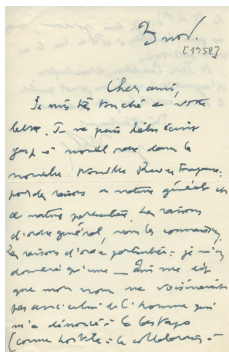 3 nov.
[1952]
Cher ami,
Je suis très touché de votre
lettre. Je ne puis hélas écrire
quoi
nouvelle Nouvelle Revue Française,
pour des raisons de nature générale et
de nature particulière. Les raisons
d'ordre général, vous les connaissez.
Les raisons d'ordre particulier : je n'en
donnerai qu'une —
que mon nom ne voisinerait
pas avec celui de l'homme qui
m'a dénoncé à la Gestapo
(comme hostile à la collaboration)